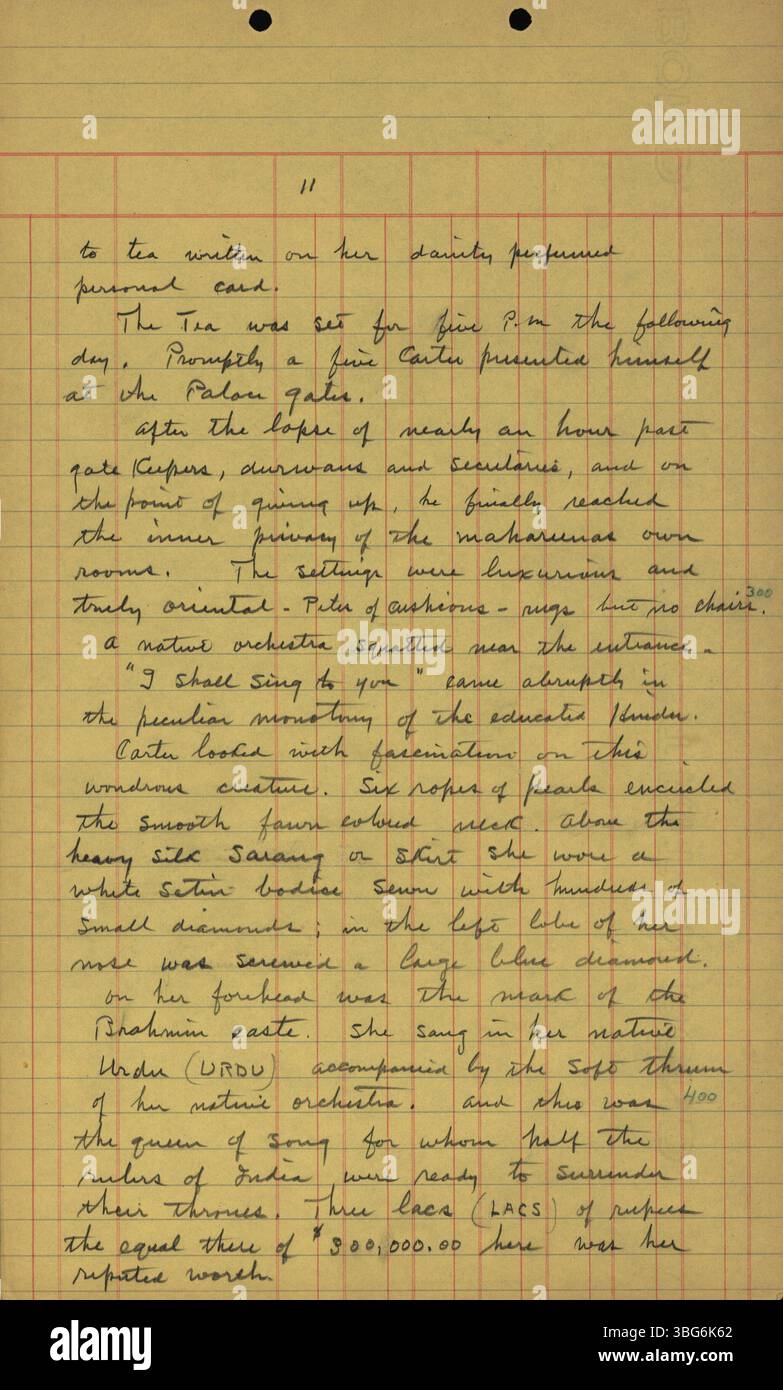 11
to tea written on her dainty perfumed
personal card.
The Tea was set for five P.m the following
day. Promptly a five Carter presented himself
at the Palace gates.
After the lapse of nearly an hour past
gate Keepers, durwans and secretaries, and on
the point of giving up, he finally reached
the inner privacy of the mahareenas own
rooms. The settings were luxurious and
truly oriental - Piles of cushions - rugs but no chairs. 300
A native orchestra squatted near the entrance.
"I shall sing to you" came abruptly in
the peculiar monotony of the educated Hindu.
Carter looked with fascination on this
wondrous creature. Six ropes of pearls encircled
the smooth fawn colored neck. Above the
heavy silk Sarang or skirt she wore a
white satin bodice sewn with hundreds of
small diamonds; in the left lobe of her
nose was screwed a large blue diamond.
on her forehead was the mark of the
Brahmin caste. She sang in her native
Urdu (URDU) accompanied by the soft thrum
of her native orchestra. And this was 400
the queen of song for whom half the
rulers of India were ready to surrender
their thrones. Three lacs (LACS) of rupees
the equal there of $300,000.00 here was her
reputed worth.
a alamy
alamy
Image ID: 3BG6K62
www.alamy.com